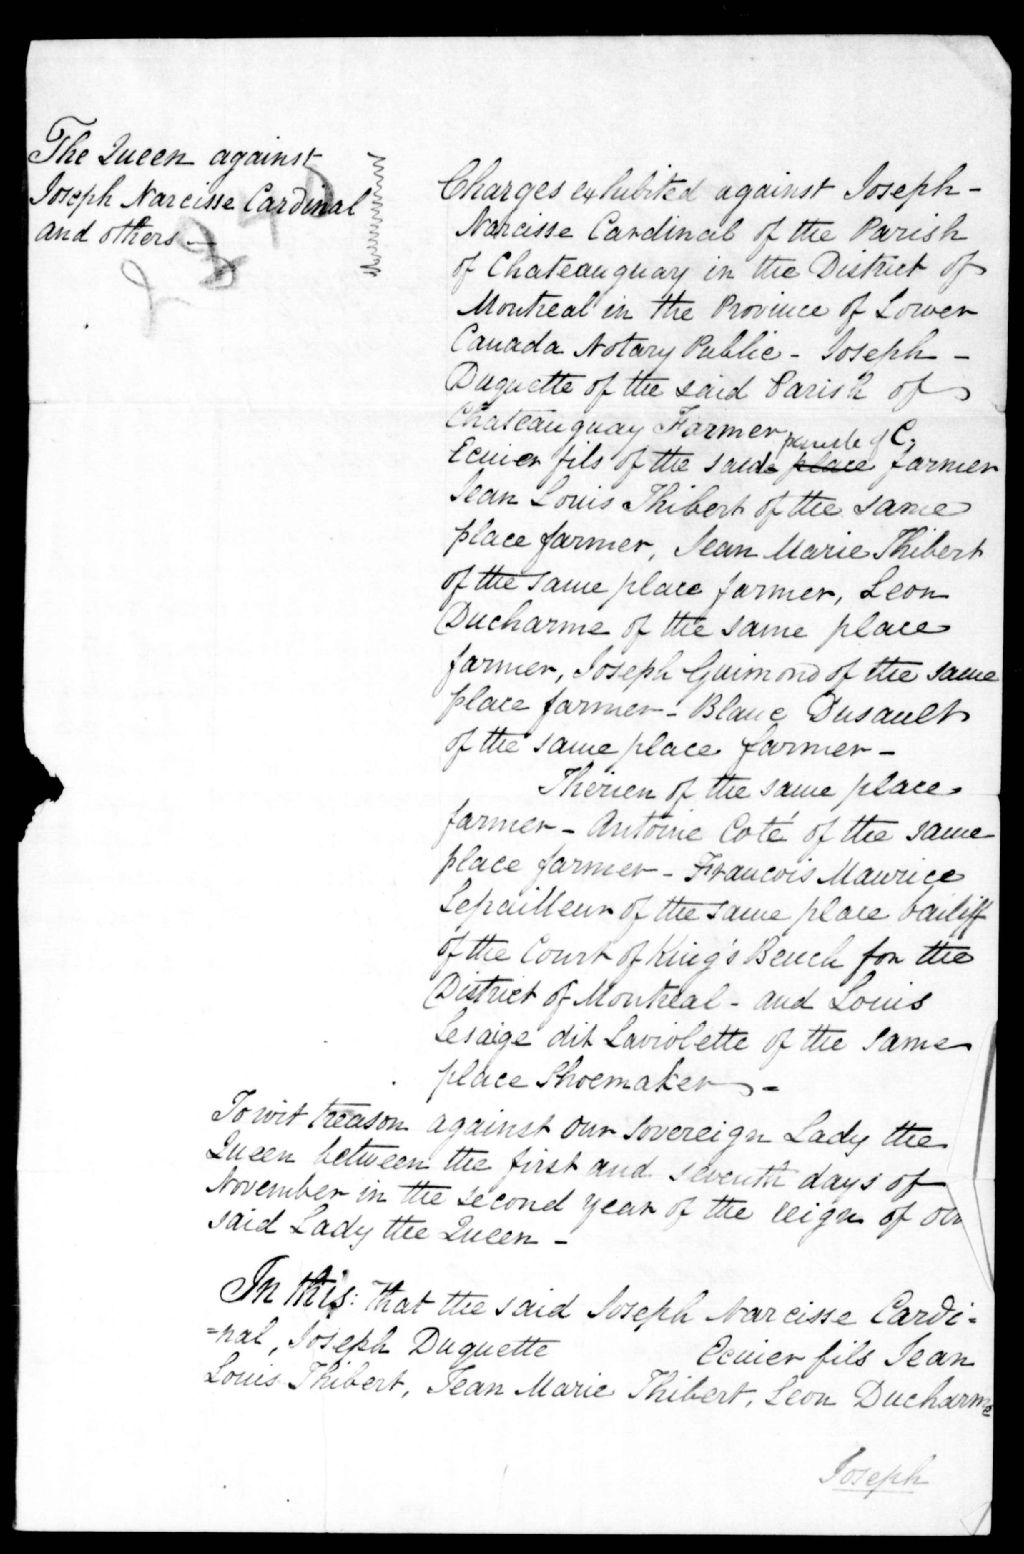 The Queen against
Joseph Narcisse Cardinal
and others —
Charges exhibited against Joseph -
Narcisse Cardinal of the Parish
of Chateauguay in the District of
Montreal in the Province of Lower
Canada Notary Public - Joseph -
Duquette of the said Parish of
Chateauguay Farmer
parish of C,
Ecuier fils of the said place farmer
Jean Louis Thibert of the same
place farmer, Jean Marie Thibert
of the same place farmer, Leon
Ducharme of the same place
farmer, Joseph Guimond of the same
place farmer - Blanc Dusault
of the same place farmer -
Thérien of the same place
farmer - Antoine Coté of the same
place farmer - Francois Maurice
Lepailleur of the same place bailiff
of the Court of King's Bench for the
District of Montreal - and Louis
Lesaige dit Laviolette of the same
place Shoemaker -
To wit treason against our Sovereign Lady the
Queen between the first and seventh days of
November in the second year of the reign of our
said Lady the Queen -
In this: that the said Joseph Narcisse Cardi-
=nal, Joseph Duquette Ecuier fils Jean
Louis Thibert, Jean Marie Thibert, Leon Ducharme
Joseph